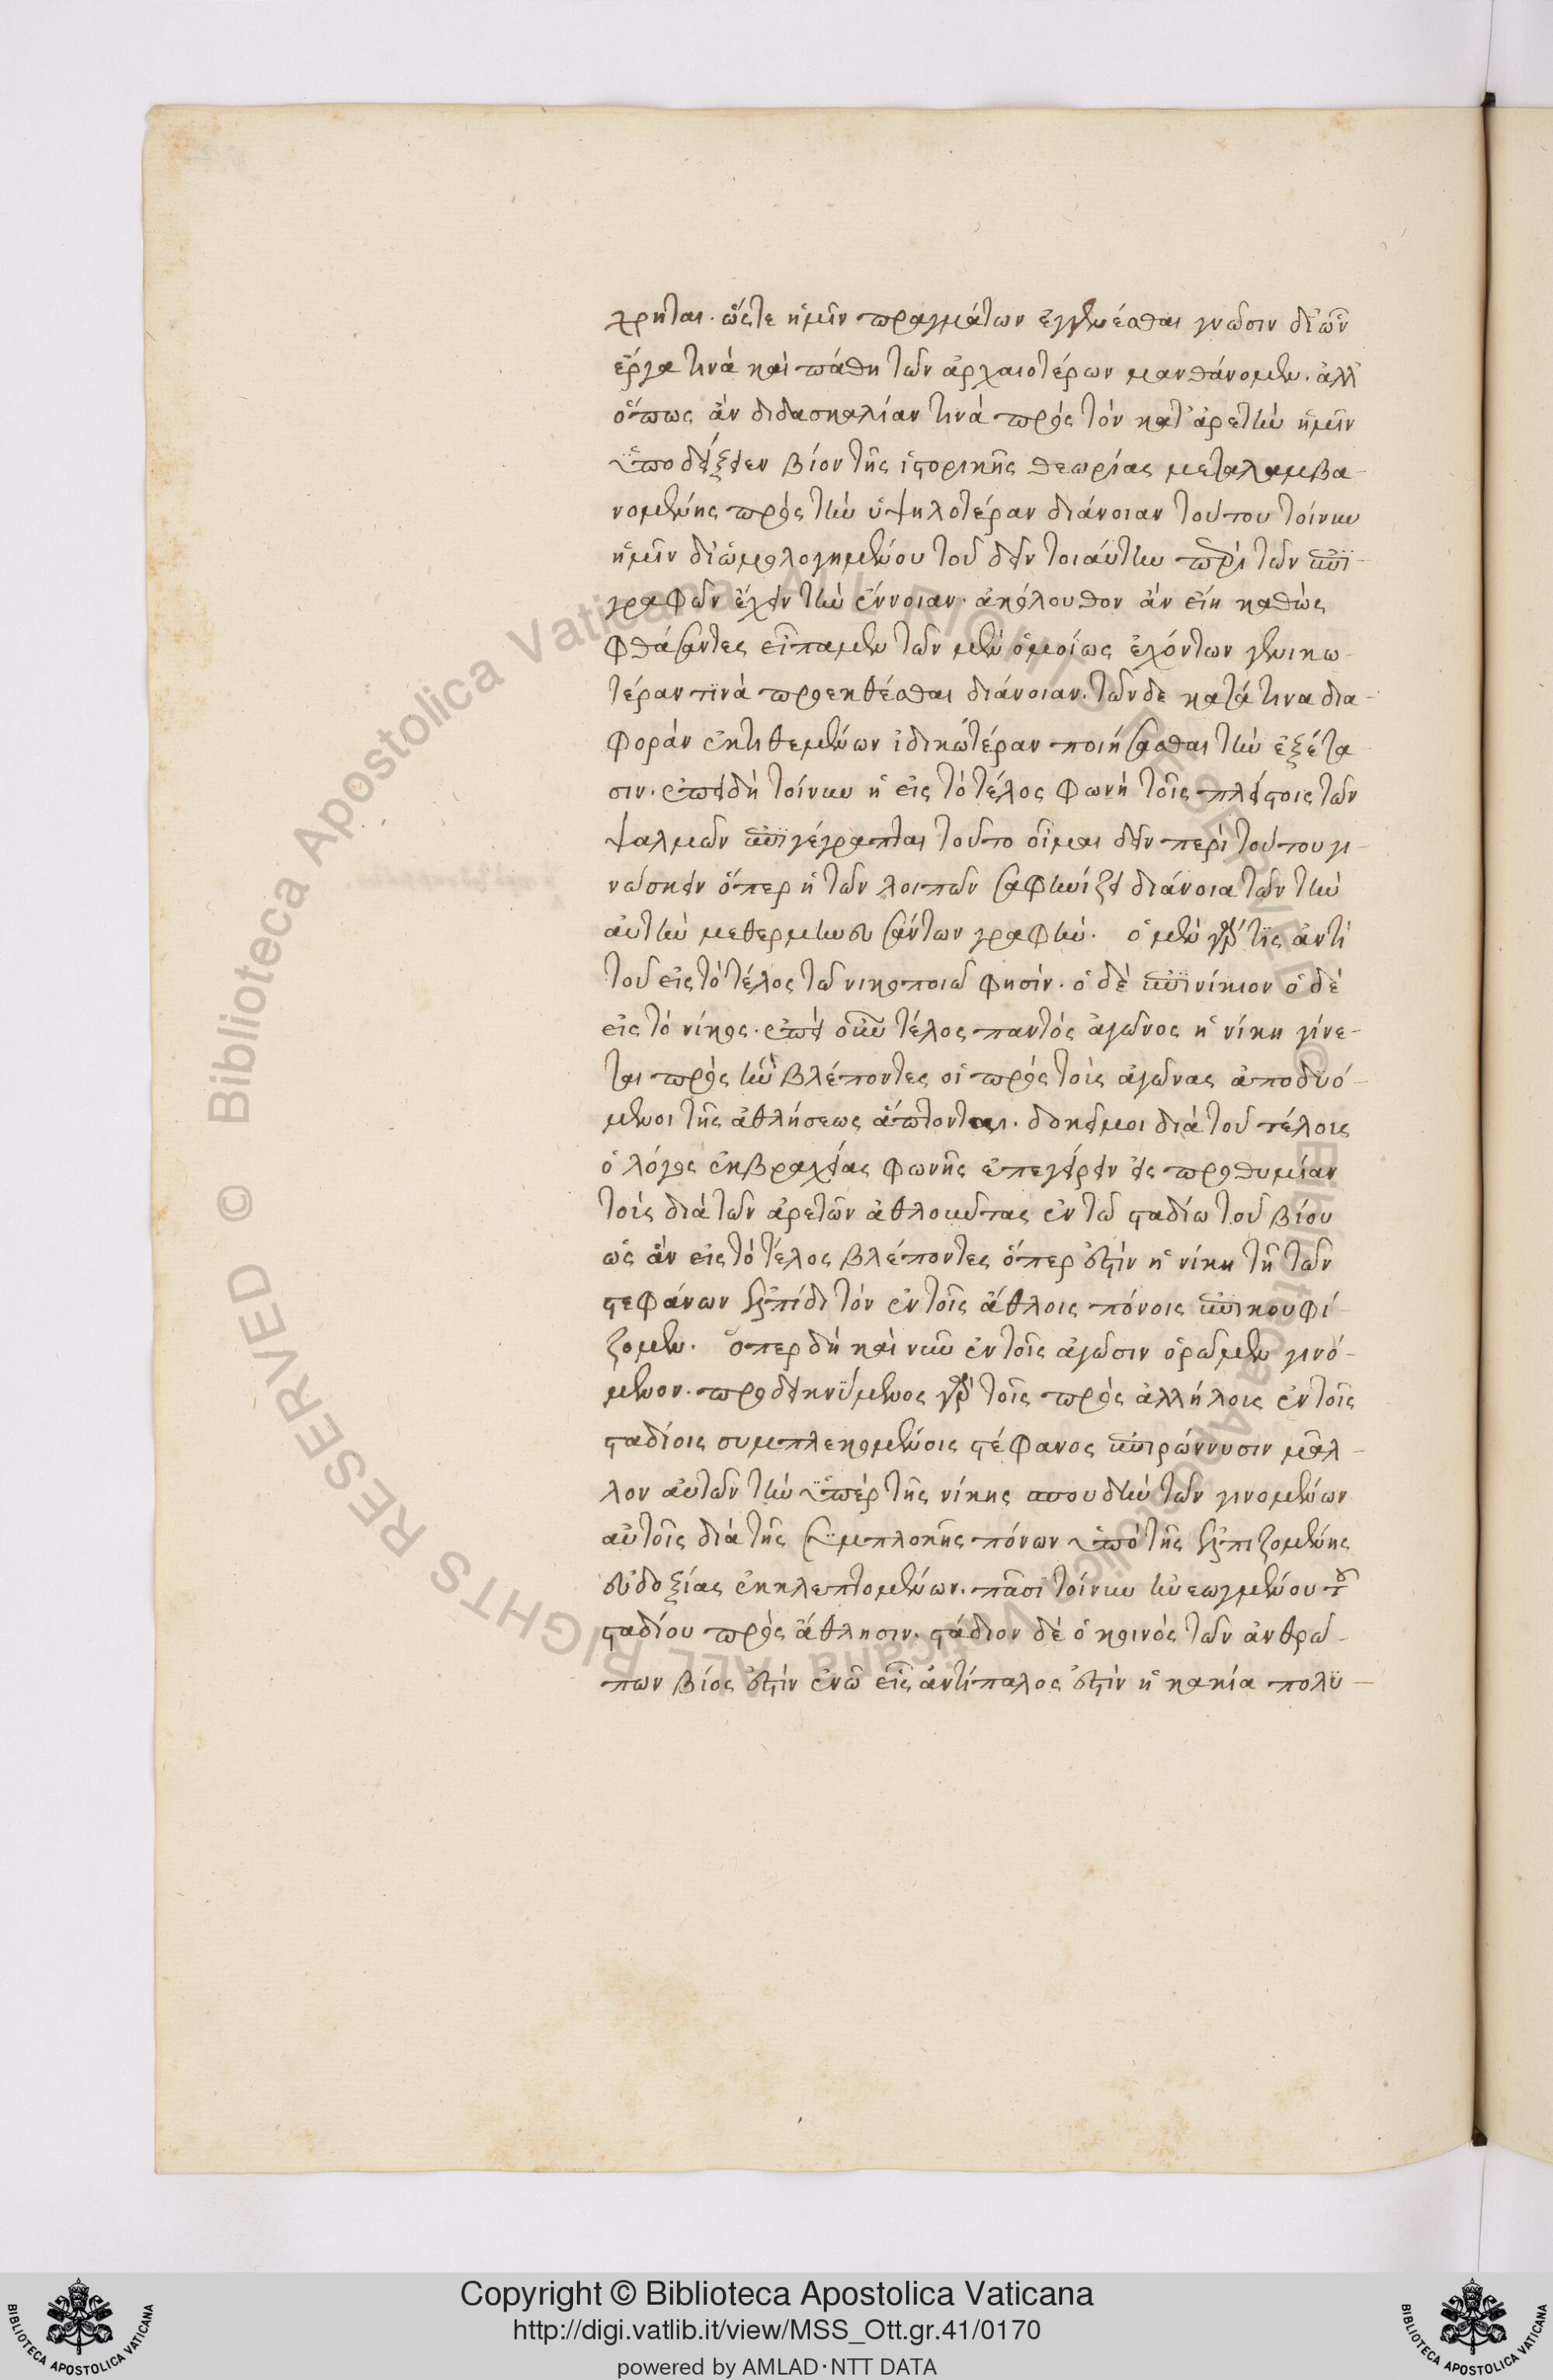 χρηται. ὥστε ἡμῖν πραγμάτων ἐγγενέσθαι γνῶσιν δι' ὧν
ἔργα τινὰ καὶ πάθη τῶν ἀρχαιοτέρων μανθάνομεν. ἀλλ'
ὅπως ἂν διδασκαλίαν τινὰ πρὸς τὸν κατ' ἀρετὴν ἡμῖν
ὑποδείξειεν βίον τῆς ἱστορικῆς θεωρίας μεταλαμβα-
νομένης πρὸς τὴν ὑψηλοτέραν διάνοιαν τούτου τοίνυν
ἡμῖν διὡμολογημένου τοῦ δεῖν τοιαύτην περὶ τῶν ἐπϊ-
γραφῶν ἔχειν τὴν ἔννοιαν. ἀκόλουθον ἂν εἴη καθὼς
φθάσαντες εἴπαμεν τῶν μὲν ὁμοίως ἐχόντων γενικω-
τέραν τϊνὰ προεκθέσθαι διάνοιαν. τῶν δε κατά τινα δια-
φορὰν ἐκτιθεμένων ἰδικωτέραν ποιήσασθαι τὴν ἐξέτα
σιν. ἐπειδὴ τοίνυν ἡ εἰς τὸ τέλος φωνὴ τοῖς πλείστοις τῶν
ψαλμῶν ἐπϊγέγραπται τοῦτο οἶμαι δεῖν περὶ τούτου γι-
νώσκειν ὅπερ ἡ τῶν λοιπῶν σαφηνίζει διάνοια τῶν τὴν
αὐτὴν μεθερμηνευσάντων γραφήν. ὁ μὲν γάρ τϊς ἀντὶ
τοῦ εἰς τὸ τέλος τῶ νικοποιῶ φησίν. ὁ δὲ ἐπϊνίκιον ὁ δὲ
εἰς τὸ νίκος. ἐπεὶ οὖν τέλος παντὸς ἀγῶνος ἡ νίκη γίνε-
ται πρὸς ἣν βλέποντες οἱ πρὸς τοὺς ἀγῶνας ἀποδυό-
μενοι τῆς ἀθλήσεως ἅπτονται. δοκεῖ μοι διὰ τοῦ τέλους
ὁ λόγος ἐκ βραχείας φωνῆς ἐπεγείρειν εἰς προθυμίαν
τοὺς διὰ τῶν ἀρετῶν ἀθλοῦντας ἐν τῶ σταδίω τοῦ βίου
ὡς ἂν εἰς τὸ τέλος βλέποντες ὅπερ ἐστὶν ἡ νίκη τῆ τῶν
στεφάνων ἐλπίδι τὸν ἐν τοῖς ἄθλοις πόνοις ἐπικουφί-
ζομεν. ὅπερ δὴ καὶ νῦν ἐν τοῖς ἀγῶσιν ὁρῶμεν γινό-
μενον. προδεικνΰμενος γὰρ τοῖς πρὸς ἀλλήλοις ἐν τοῖς
σταδίοις συμπλεκομένοις στέφανος ἐπιρώννυσιν μᾶλ-
λον αὐτῶν τὴν ὑπὲρ τῆς νίκης σπουδὴν τῶν γινομένων
αὐτοῖς διὰ τῆς συμπλοκῆς πόνων ὑπὸ τῆς ἐλπιζομένης
εὐδοξίας ἐκκλεπτομένων. πᾶσι τοίνυν ἠνεωγμένου τοῦ
σταδίου πρὸς ἄθλησιν. στάδιον δὲ ὁ κοινὸς τῶν ἀνθρώ-
πων βίος ἐστὶν ἐν ὧ εἷς ἀντίπαλος ἐστὶν ἡ κακία πολϋ-
© Biblioteca Apostolica Vaticana ALL RIGHTS RESERVED © Biblioteca Apostolica Vaticana ALL RIGHTS RESERVED
BIBLIOTECA APOSTOLICA VATICANA
Copyright © Biblioteca Apostolica Vaticana
http://digi.vatlib.it/view/MSS_Ott.gr.41/0170
powered by AMLAD·NTT DATA
BIBLIOTECA APOSTOLICA VATICANA